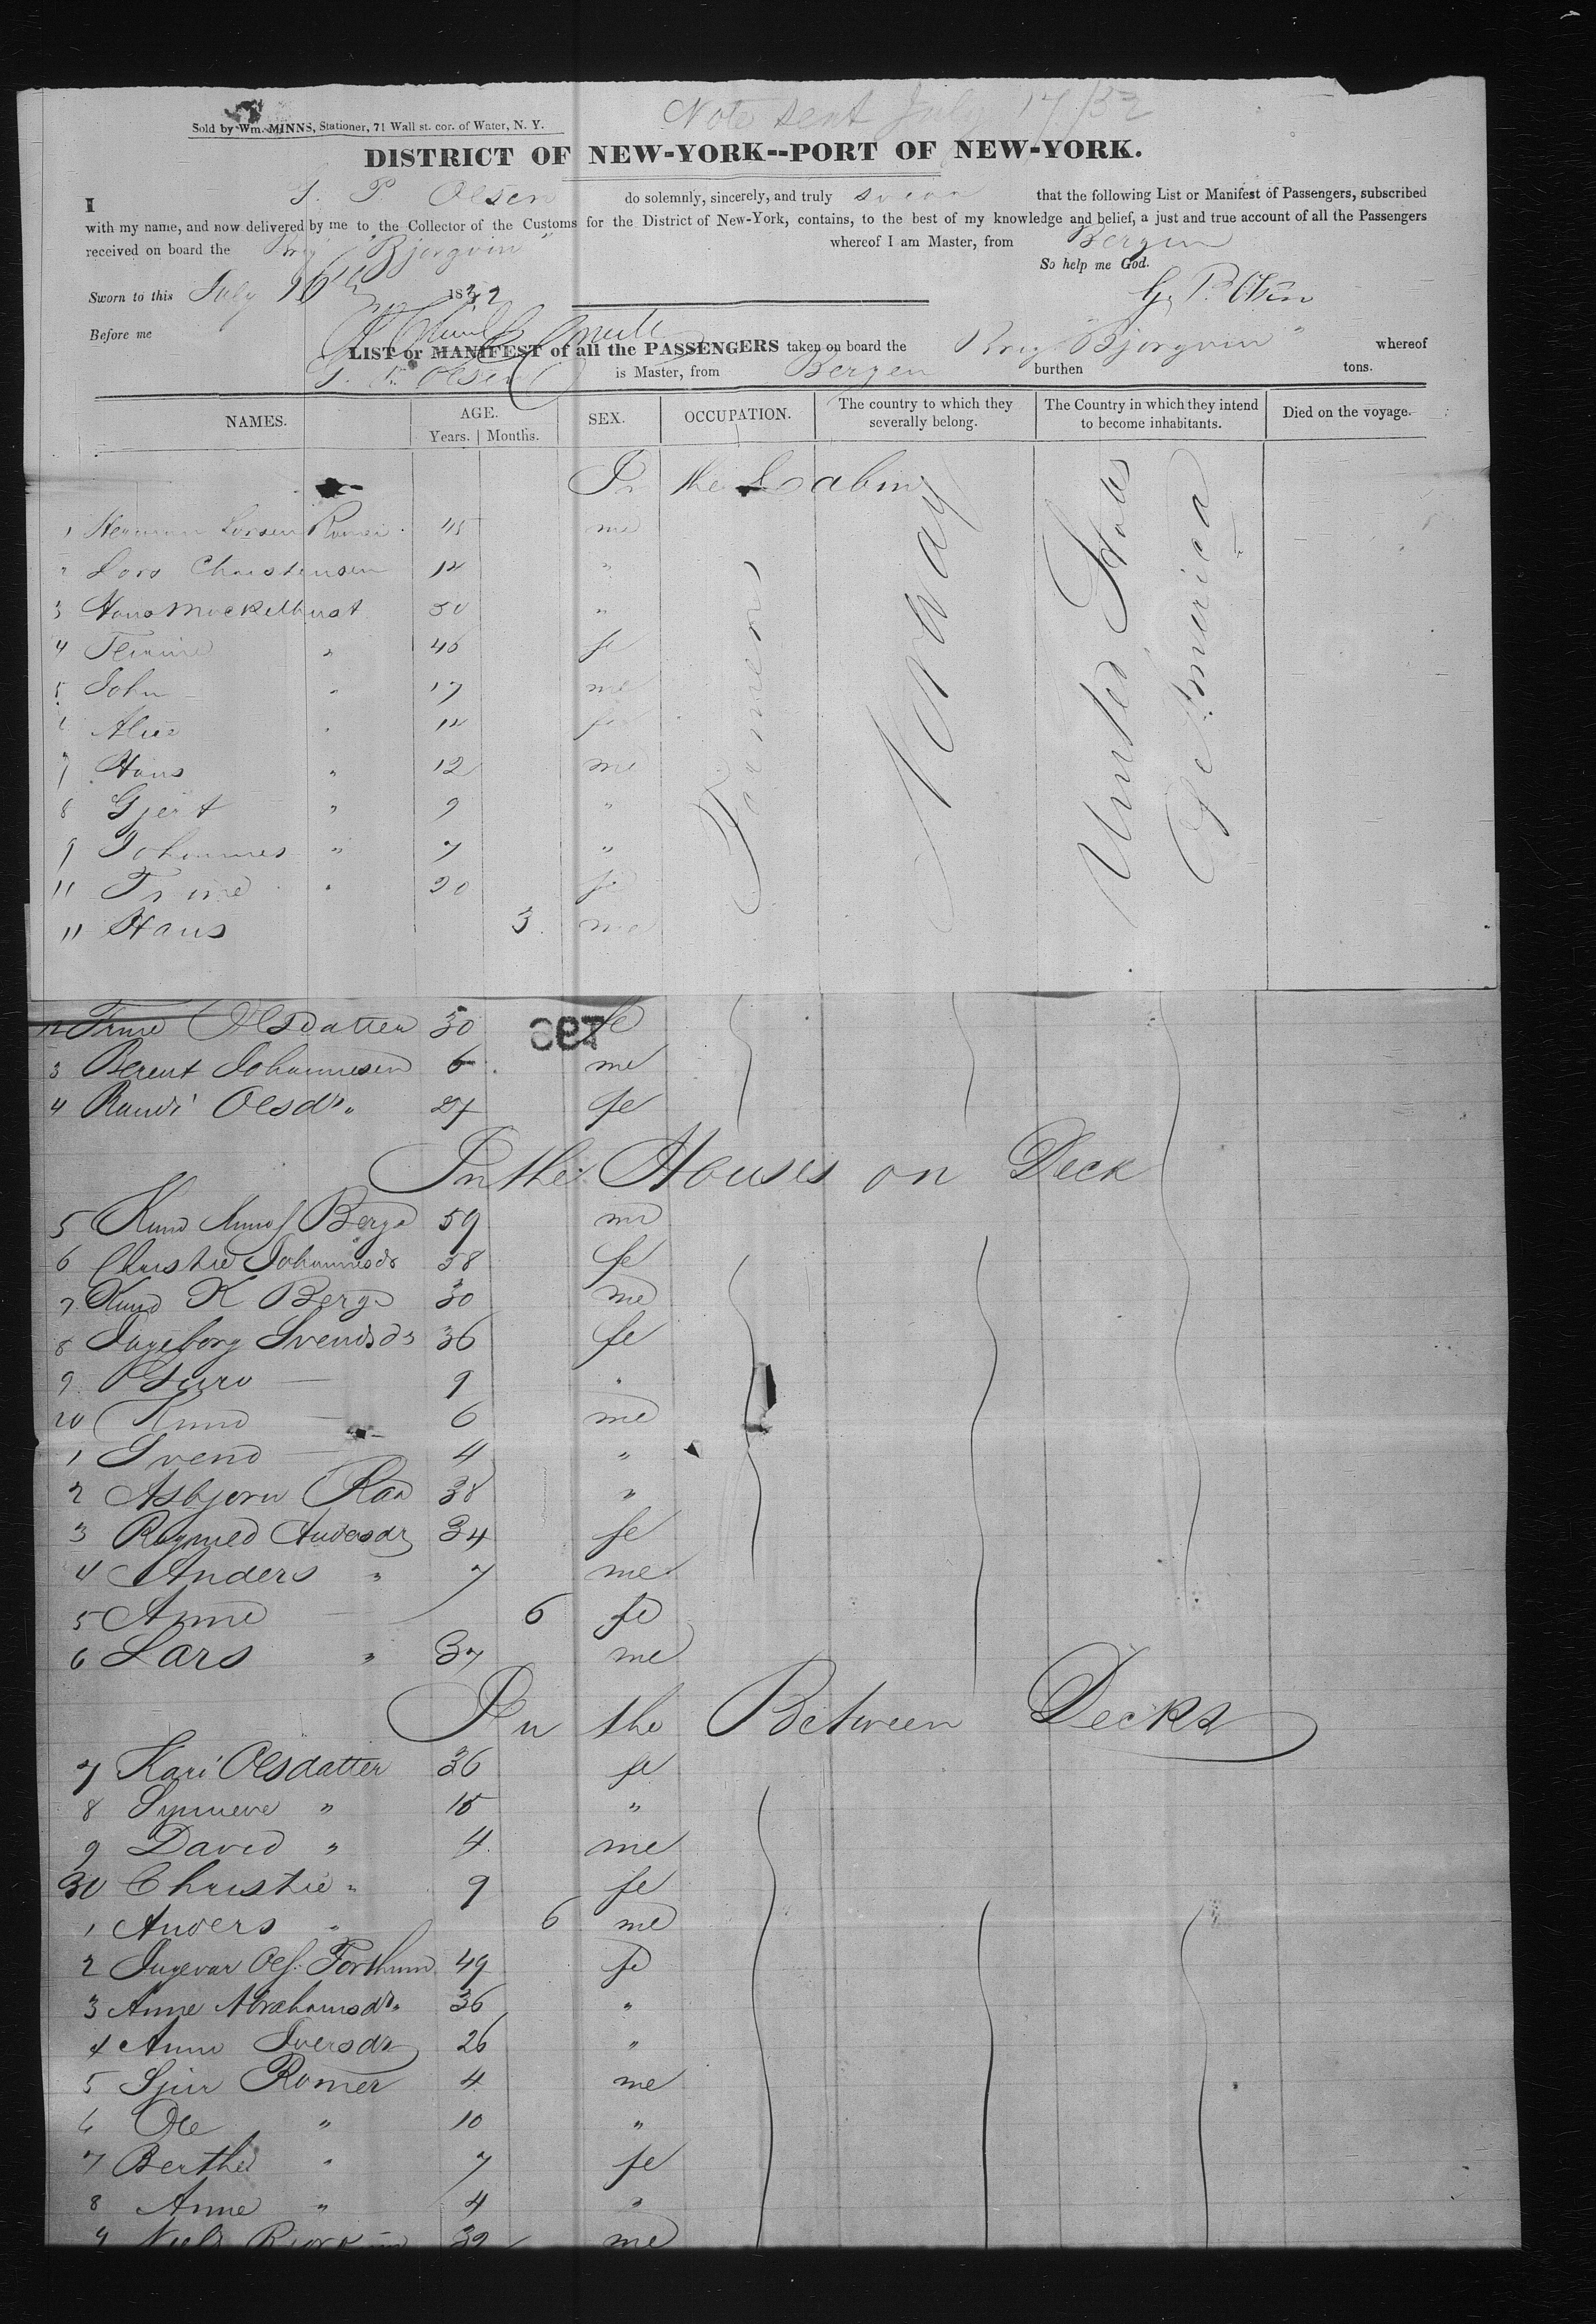 Note sent July 17/32
Sold by Wm. MINNS, Stationer, 71 Wall st. cor. of Water, N. Y.
DISTRICT OF NEW-YORK--PORT OF NEW-YORK.
I P. Olsen do solemnly, sincerely, and truly swear that the following List or Manifest of Passengers, subscribed
with my name, and now delivered by me to the Collector of the Customs for the District of New-York, contains, to the best of my knowledge and belief, a just and true account of all the Passengers
received on board the Brig "Bjorgvin" whereof I am Master, from Bergen
So help me God.
Sworn to this July 16th 18 P. Olsen
Before me
LIST or MANIFEST of all the PASSENGERS taken on board the Brig "Bjorgvin" whereof
Olsen is Master, from Bergen burthen tons.
NAMES. AGE. Years. Months. SEX. OCCUPATION. The country to which they severally belong. The Country in which they intend to become inhabitants. Died on the voyage.
In the Cabin
1 Larsen 45 me
2 Christensen 12 "
3 Hans 50 "
4 " 46 fe
5 John " 17 me
6 Alice " 12 fe
7 Hans " 12 me
8 Gjert " 9 "
9 Johannes " 7 "
11 Trine " 20 fe
11 Hans 3 me
Farmers
Norway
United States
of America
12 Trine Olsdatter 30 fe
3 Berent Johannesen 6 me
4 Randi Olsdr. 27 fe
In the Houses on Deck
5 Knud Berge 59 me
6 Christie Johannesdr 58 fe
7 Knud K Berge 30 me
8 Ingeborg Svendsdr 36 fe
9 Guro — 9 "
20 Knud — 6 me
1 Svend — 4 "
2 Asbjorn 38 "
3 Andersdr 34 fe
4 Anders " 7 me
5 Anne — 6 fe
6 Lars " 37 me
In the Between Decks
7 Kari Olsdatter 36 fe
8 Synneve " 15 "
9 David " 4 me
30 Christie " 9 fe
1 Anders " 6 me
2 Ingevar 49 fe
3 Anne Abrahamsdr. 36 "
4 Anne Iversdr 26 "
5 Sjur Romer 4 me
6 Ole " 10 "
7 Berthe " 7 fe
8 Anne " 4 "
9 Niels 39 me